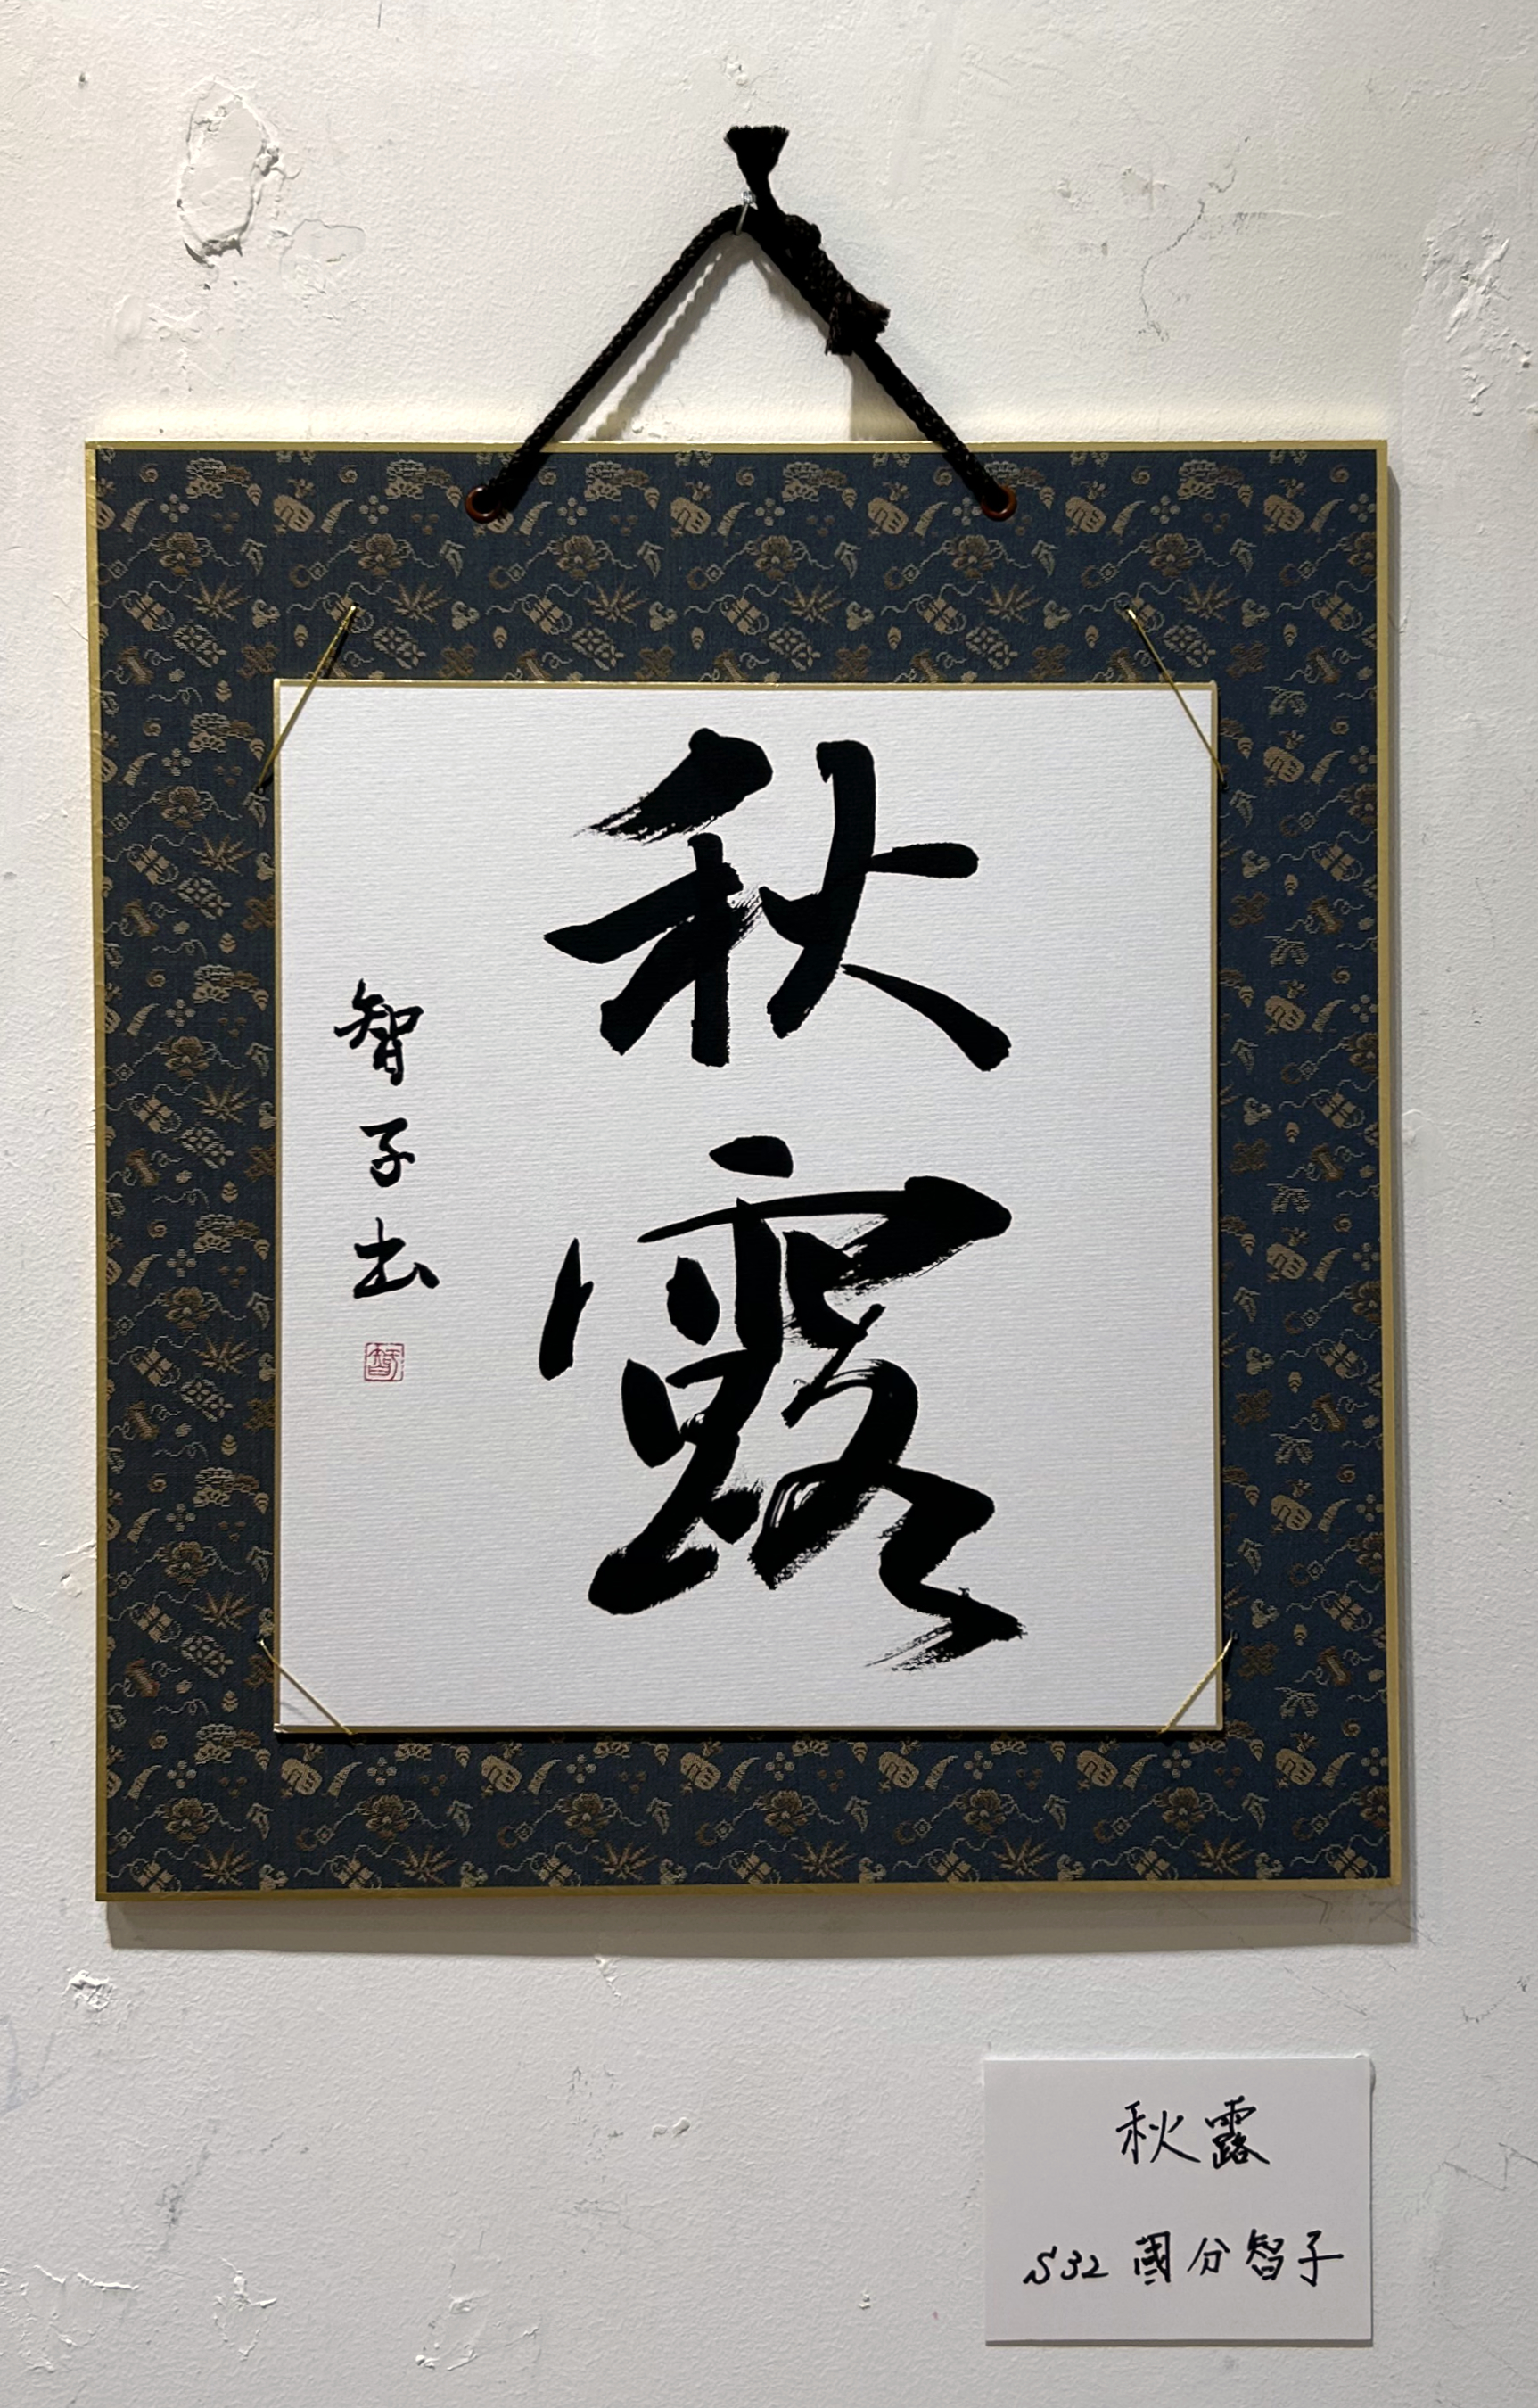 秋露
智子出
秋露
S32 國分智子